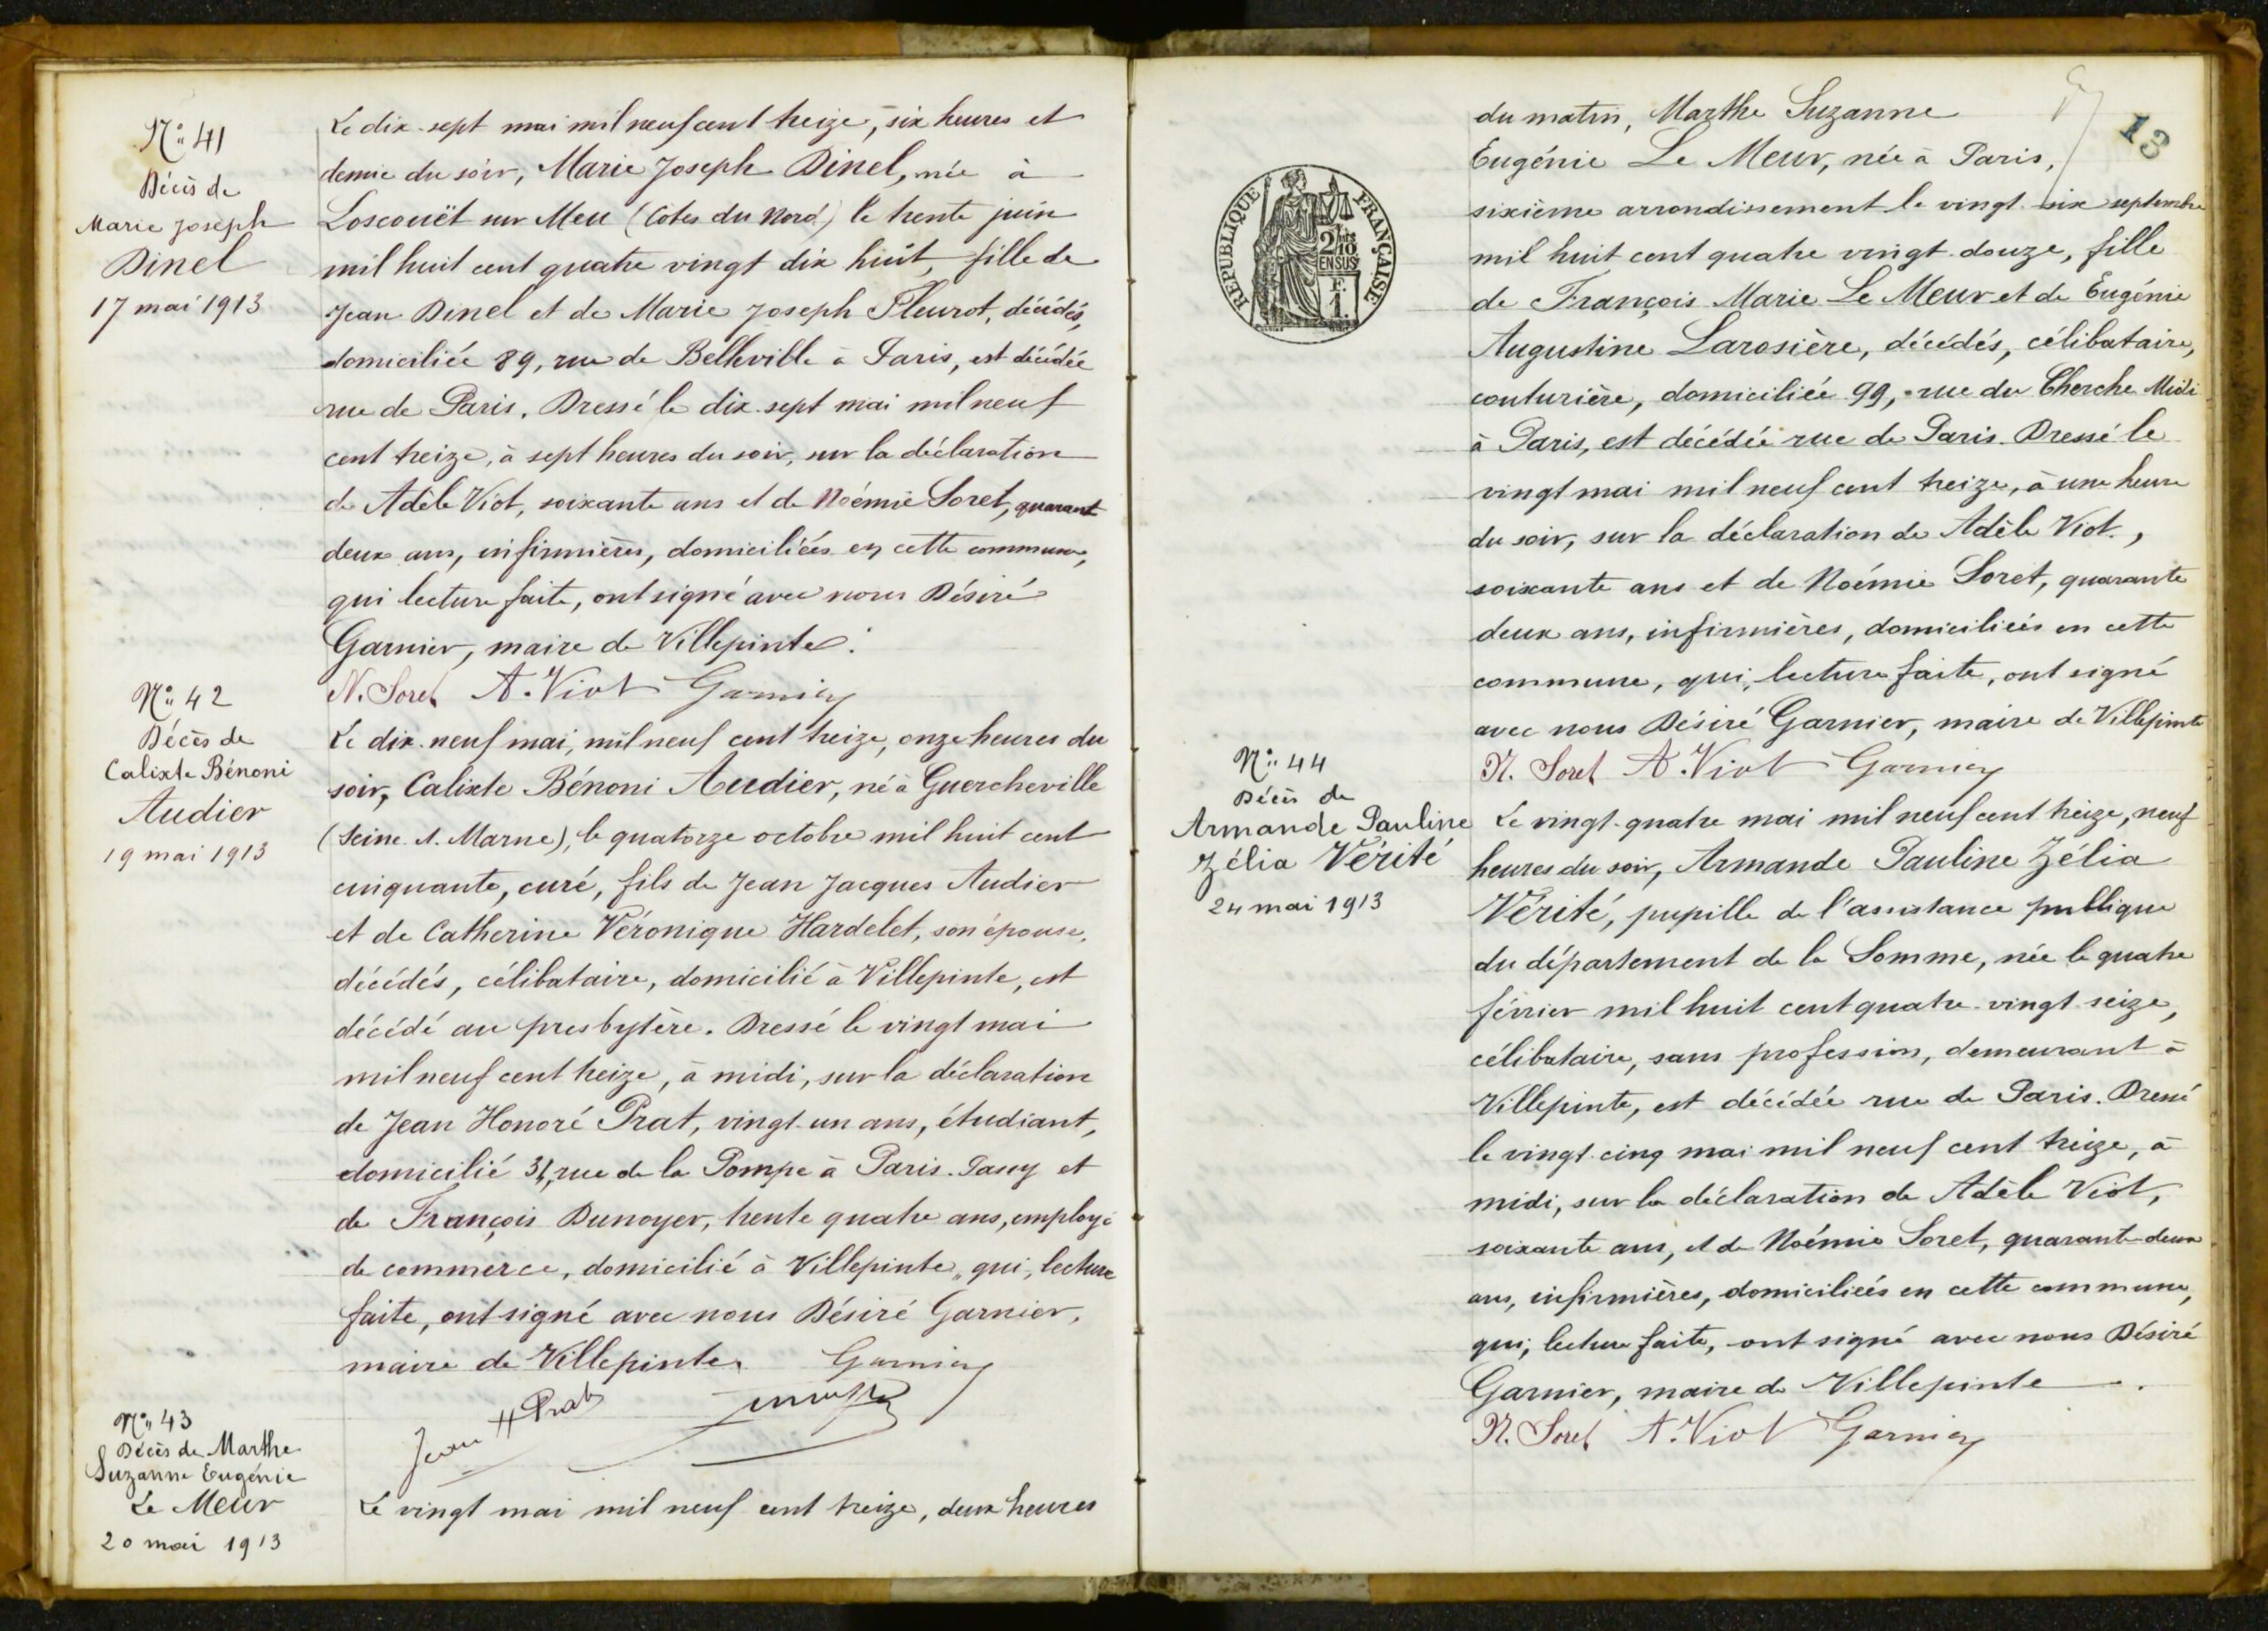 N° 41
Décès de
Marie Joseph
Dinel
17 mai 1913
Le dix-sept mai mil neuf cent treize, six heures et
demie du soir, Marie Joseph Dinel, née à
Loscouët sur Meu (Côtes du Nord) le trente juin
mil huit cent quatre vingt dix huit, fille de
Jean Dinel et de Marie Joseph Pleurot, décédés,
domiciliée 89, rue de Belleville à Paris, est décédée
rue de Paris. Dressé le dix-sept mai mil neuf
cent treize, à sept heures du soir, sur la déclaration
de Adèle Viot, soixante ans et de Noémie Soret, quarante
deux ans, infirmières, domiciliées en cette commune,
qui lecture faite, ont signé avec nous Désiré
Garnier, maire de Villepinte.
N. Soret A. Viot Garnier
N° 42
Décès de
Calixte Bénoni
Audier
19 mai 1913
Le dix-neuf mai, mil neuf cent treize, onze heures du
soir, Calixte Bénoni Audier, né à Guercheville
(Seine et Marne), le quatorze octobre mil huit cent
cinquante, curé, fils de Jean Jacques Audier
et de Catherine Véronique Hardelet, son épouse,
décédés, célibataire, domicilié à Villepinte, est
décédé au presbytère. Dressé le vingt mai
mil neuf cent treize, à midi, sur la déclaration
de Jean Honoré Prat, vingt-un ans, étudiant,
domicilié rue de la Pompe à Paris-Passy et
de François Dunoyer, trente quatre ans, employé
de commerce, domicilié à Villepinte, qui, lecture
faite, ont signé avec nous Désiré Garnier,
maire de Villepinte. Garnier
Jean H Prat
N° 43
Décès de Marthe
Suzanne Eugénie
Le Meur
20 mai 1913
Le vingt mai mil neuf cent treize, deux heures
13
RÉPUBLIQUE FRANÇAISE
2/10
EN SUS
F.
1.
du matin, Marthe Suzanne
Eugénie Le Meur, née à Paris,
sixième arrondissement le vingt-six septembre
mil huit cent quatre vingt-douze, fille
de François Marie Le Meur et de Eugénie
Augustine Larosière, décédés, célibataire,
couturière, domiciliée 99, rue du Cherche Midi
à Paris, est décédée rue de Paris. Dressé le
vingt mai mil neuf cent treize, à une heure
du soir, sur la déclaration de Adèle Viot,
soixante ans et de Noémie Soret, quarante
deux ans, infirmières, domiciliées en cette
commune, qui, lecture faite, ont signé
avec nous Désiré Garnier, maire de Villepinte
N. Soret A. Viot Garnier
N° 44
Décès de
Armande Pauline
Zélia Vérité
24 mai 1913
Le vingt-quatre mai mil neuf cent treize, neuf
heures du soir, Armande Pauline Zélia
Vérité, pupille de l'assistance publique
du département de la Somme, née le quatre
février mil huit cent quatre-vingt seize,
célibataire, sans profession, demeurant à
Villepinte, est décédée rue de Paris. Dressé
le vingt-cinq mai mil neuf cent treize, à
midi, sur la déclaration de Adèle Viot,
soixante ans, et de Noémie Soret, quarante-deux
ans, infirmières, domiciliées en cette commune,
qui, lecture faite, ont signé avec nous Désiré
Garnier, maire de Villepinte.
N. Soret A. Viot Garnier